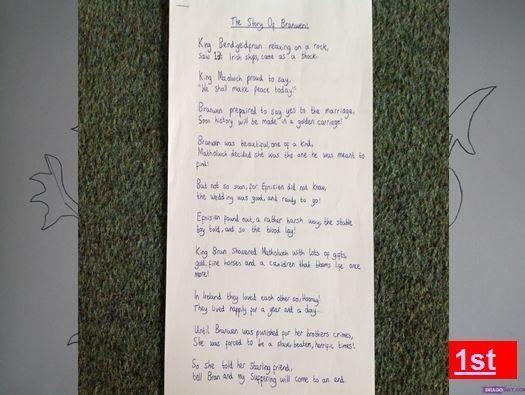 The Story Of Branwen!
King Bendigedfran relaxing on a rock,
Saw 13 Irish ships, came as a shock.
King Maolwch proud to say,
"We shall make peace today!"
Branwen prepared to say yes to the marriage,
Soon history will be made in a golden carriage!
Branwen was beautiful, one of a kind,
Matholwch decided she was the one he was meant to
find!
But not so soon, for Efnisien did not know,
the wedding was good, and ready to go!
Efnisien found out, a rather harsh way, the stable
boy told, and so the blood lay!
King Bran showered Matholwch with lots of gifts,
gold, fine horses and a cauldren that life once
more!
In Ireland they loved each other so, Hooray!
They lived happily for a year and a day
Until Branwen was punished for her brothers crimes,
She was forced to be a slave, beaten, horrific times!
So she told her Starling friend,
tell Bran and my suffering will come to an end.
1st